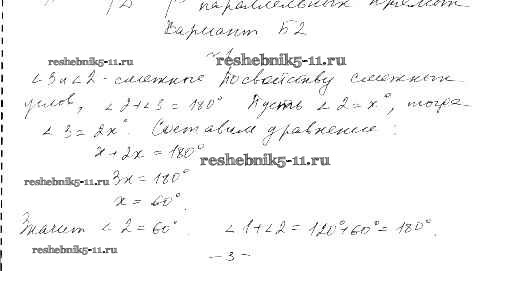 параллельных прямых
Вариант Б2
№1
reshebnik5-11.ru reshebnik5-11.ru
∠3 и ∠2 - смежные. По свойству смежных
углов, ∠2+∠3 = 180° Пусть ∠2 = x°, тогда
∠3 = 2x°. Составим уравнение:
x + 2x = 180°
reshebnik5-11.ru
reshebnik5-11.ru 3x = 180°
x = 60°.
Значит ∠2 = 60°. ∠1+∠2 = 120°+60° = 180°.
reshebnik5-11.ru
- 3 -